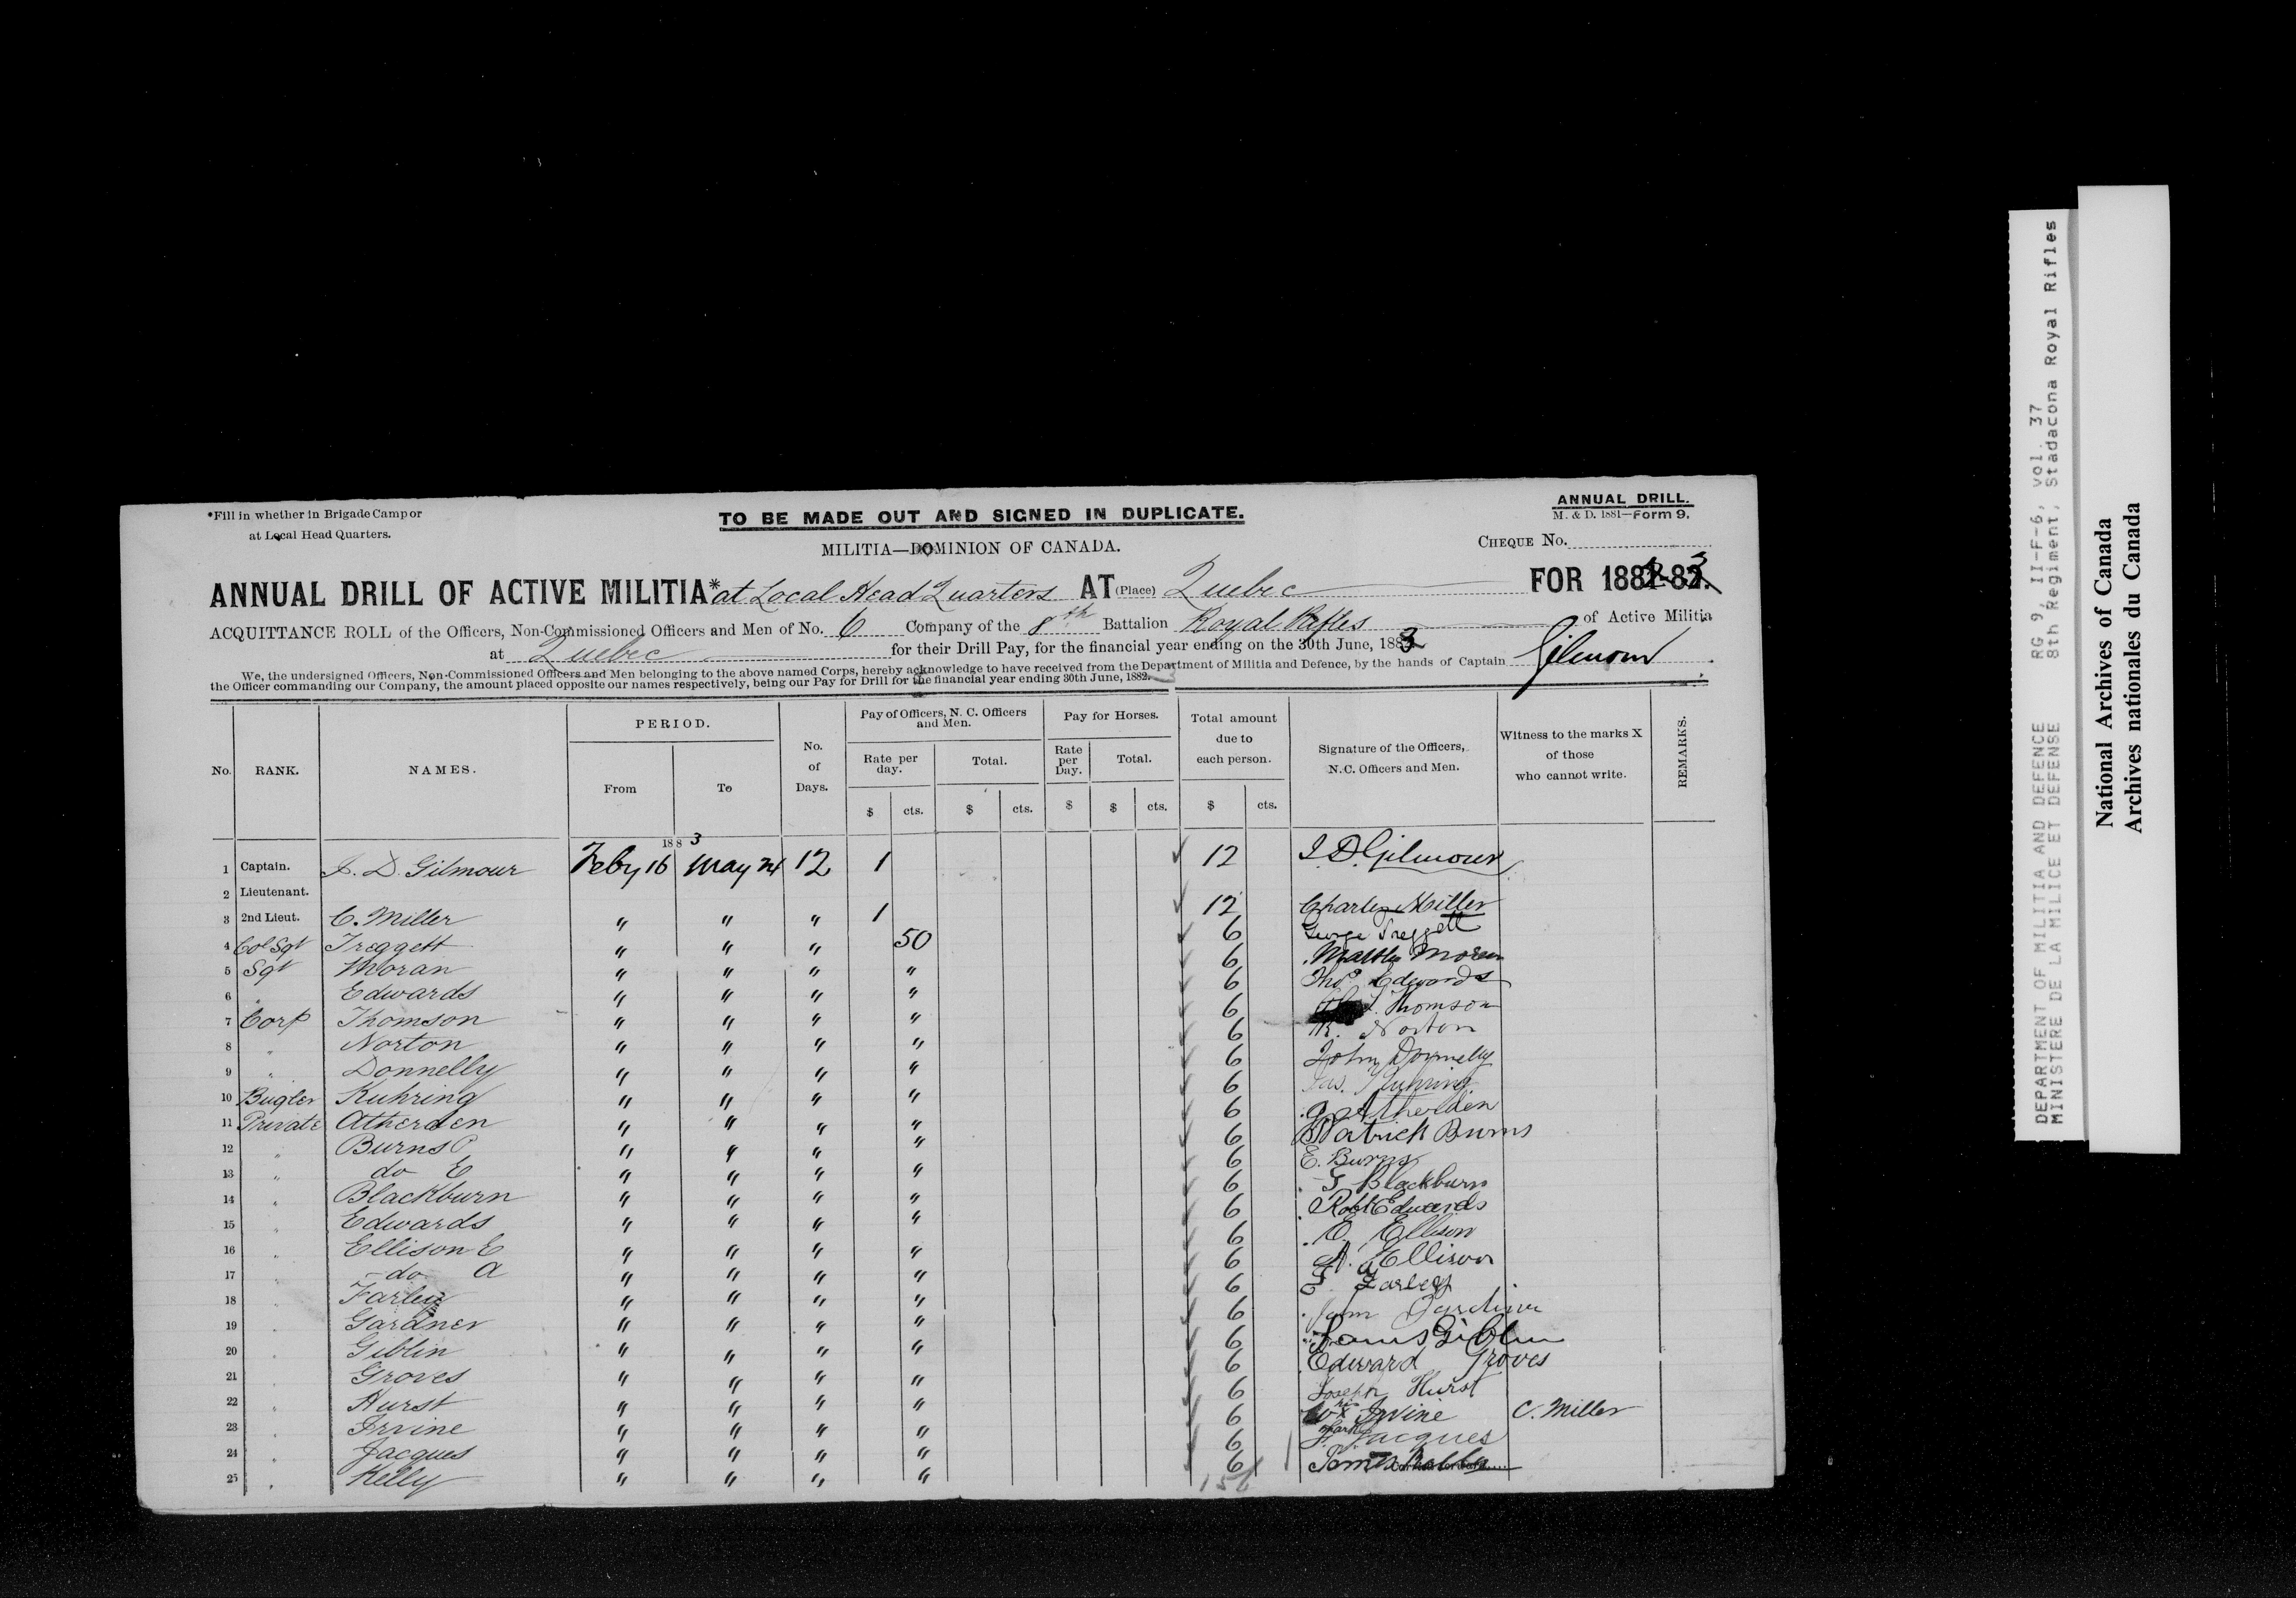 *Fill in whether in Brigade Camp or
at Local Head Quarters.
TO BE MADE OUT AND SIGNED IN DUPLICATE.
ANNUAL DRILL.
M. & D. 1881—Form 9.
MILITIA—DOMINION OF CANADA.
CHEQUE No.
ANNUAL DRILL OF ACTIVE MILITIA* at Local Head Quarters AT (Place) Quebec FOR 1882-83.
ACQUITTANCE ROLL of the Officers, Non-Commissioned Officers and Men of No. 6 Company of the 8th Battalion Royal Rifles of Active Militia
at Quebec for their Drill Pay, for the financial year ending on the 30th June, 1883
We, the undersigned Officers, Non-Commissioned Officers and Men belonging to the above named Corps, hereby acknowledge to have received from the Department of Militia and Defence, by the hands of Captain Gilmour
the Officer commanding our Company, the amount placed opposite our names respectively, being our Pay for Drill for the financial year ending 30th June, 1882.
No. RANK. NAMES. PERIOD. From To No. of Days. Pay of Officers, N. C. Officers and Men. Rate per day. $ cts. Total. $ cts. Pay for Horses. Rate per Day. $ Total. $ cts. Total amount due to each person. $ cts. Signature of the Officers, N.C. Officers and Men. Witness to the marks X of those who cannot write. REMARKS.
1883
1 Captain. J. D. Gilmour Feby 16 May 24 12 1 12 J. D. Gilmour
2 Lieutenant.
3 2nd Lieut. C. Miller " " " 1 12 Charles Miller
4 Col Sgt Treggett " " " 50 6 George Treggett
5 Sgt Moran " " " " 6 Moran
6 " Edwards " " " " 6 Thos Edwards
7 Corp Thomson " " " " 6 Thomson
8 " Norton " " " " 6 Norton
9 " Donnelly " " " " 6 John Donnelly
10 Bugler Kuhring " " " " 6 Jas. Kuhring
11 Private Atherden " " " " 6 G. Atherden
12 " Burns P " " " " 6 Patrick Burns
13 " do E " " " " 6 E. Burns
14 " Blackburn " " " " 6 Blackburn
15 " Edwards " " " " 6 Robt Edwards
16 " Ellison E " " " " 6 E. Ellison
17 " do A " " " " 6 A. Ellison
18 " Farley " " " " 6 Farley
19 " Gardner " " " " 6 John Gardiner
20 " Giblin " " " " 6 James Giblin
21 " Groves " " " " 6 Edward Groves
22 " Hurst " " " " 6 Joseph Hurst
23 " Irvine " " " " 6 W his X mark Irvine C. Miller
24 " Jacques " " " " 6 Jacques
25 " Kelly " " " " 6 James Kelly
156
DEPARTMENT OF MILITIA AND DEFENCE RG 9, II-F-6, vol. 37
MINISTERE DE LA MILICE ET DEFENSE 8th Regiment, Stadacona Royal Rifles
National Archives of Canada
Archives nationales du Canada